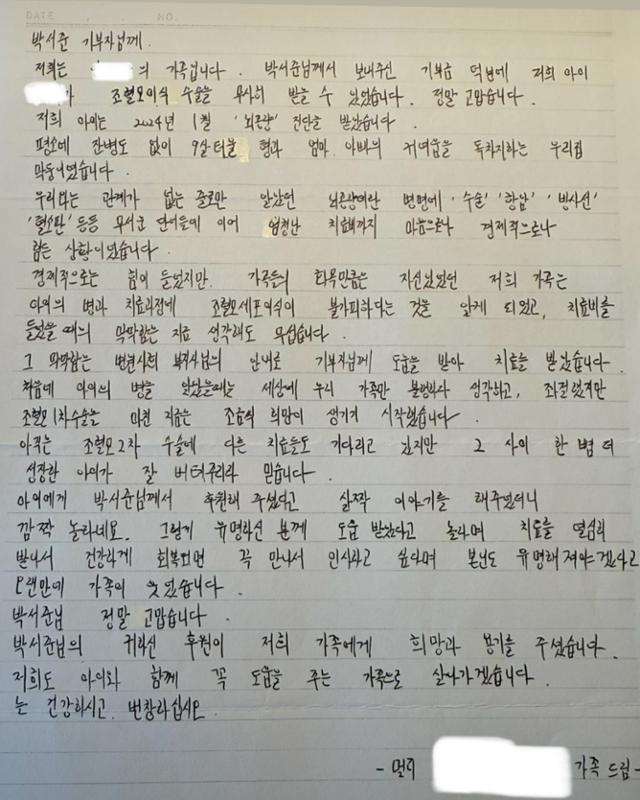 DATE NO.
박서준 기부자님께.
저희는 의 가족입니다. 박서준님께서 보내주신 기부금 덕분에 저희 아이
가 조혈모이식 수술을 무사히 받을 수 있었습니다. 정말 고맙습니다.
저희 아이는 2024년 1월 '뇌종양' 진단을 받았습니다.
평소에 잔병도 없이 9살 터울 형과 엄마 아빠의 귀여움을 독차지하는 우리집
막둥이였습니다.
우리와는 관계가 없는 줄로만 알았던 뇌종양이란 병명에 '수술' '항암' '방사선'
'혈소판' 등등 무서운 단어들에 이어 엄청난 치료비까지 마음으로나 경제적으로나
힘든 상황이었습니다.
경제적으로는 힘이 들었지만 가족들의 화목만큼은 자신있었던 저희 가족은
아이의 병과 치료과정에 조혈모세포이식이 불가피하다는 것을 알게 되었고, 치료비를
들었을 때의 막막함는 지금 생각해도 무섭습니다.
그 막막함는 병원사회 복지사님의 안내로 기부자님께 도움을 받아 치료를 받았습니다.
처음에 아이의 병을 알았을때는 세상에 우리 가족만 불행하다 생각하고, 좌절했지만
조혈모1차수술을 마친 지금은 조금의 희망이 생기기 시작했습니다.
아직는 조혈모2차 수술에 다른 치료들도 기다리고 있지만 그 사이 한 뼘 더
성장한 아이가 잘 버텨주리라 믿습니다.
아이에게 박서준님께서 후원해 주셨다고 살짝 이야기를 해주었더니
깜짝 놀라네요. 그렇게 유명하신 분께 도움 받았다고 놀라며 치료를 열심히
받아서 건강하게 회복되면 꼭 만나서 인사하고 싶다며 본인도 유명해져야겠다고
오랜만에 가족이 웃었습니다.
박서준님 정말 고맙습니다.
박서준님의 귀하신 후원이 저희 가족에게 희망과 용기를 주셨습니다.
저희도 아이와 함께 꼭 도움을 주는 가족으로 살아가겠습니다.
늘 건강하시고 번창하십시오.
- 멀리 가족 드림-